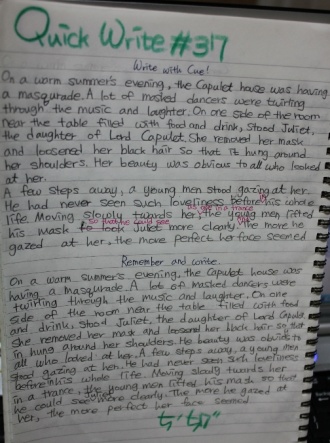 Quick Write #317
Write with Cue!
On a warm summer's evening, the Capulet house was having
a masqurade. A lot of masked dancers were twirling
through the music and laughter. On one side of the room
near the table filled with food and drink, stood Juliet,
the daughter of Lord Capulet. She removed her mask
and loosened her black hair so that it hung around
her shoulders. Her beauty was obvious to all who looked
at her.
A few steps away, a young men stood gazing at her.
He had never seen such loveliness before his whole
life. Moving slowly towards her, the young men lifted
his mask to look Juliet more clearly. The move he
gazed at her, the move perfect her face seemed
Remember and write.
On a warm summer's evening, the Capulet house was
having a masquerade. A lot of masked dancers were
twirling through the music and laughter. On one
side of the room near the table filled with food
and drink, stood Juliet, the daughter of Lord Capulet.
She removed her mask and loosened her black hair so that
in hung around her shoulders. He beauty was obvids to
all who looked at her. A few steps away, a young men
stood gazing at her. He had never seen such loveliness
before in his whole life. Moving slowly towards her
in a trance, the young men lifted his mask so that
he could see Juliet more clearly. The more he gazed at
her, the more perfect her face seemed